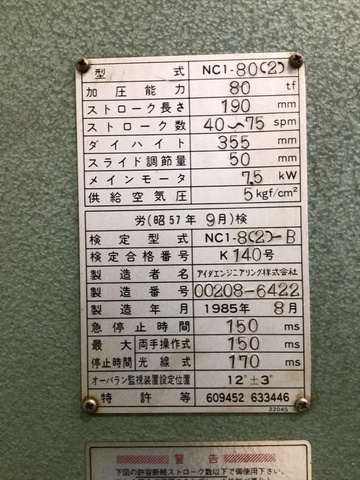 型式 NC1-80(2)
加圧能力 80 tf
ストローク長さ 190 mm
ストローク数 40～75 spm
ダイハイト 355 mm
スライド調節量 50 mm
メインモータ 7.5 kW
供給空気圧 5 kgf/cm²
労(昭57年9月)検
検定型式 NC1-8(2)-B
検定合格番号 K140号
製造者名 アイダエンジニアリング株式会社
製造番号 00208-6422
製造年月 1985年8月
急停止時間 150 ms
最大停止時間 両手操作式 150 ms
光線式 170 ms
オーバラン監視装置設定位置 12°±3°
特許等 609452 633446
22045
警告
下図の許容断続ストローク数以下で御使用下さい。